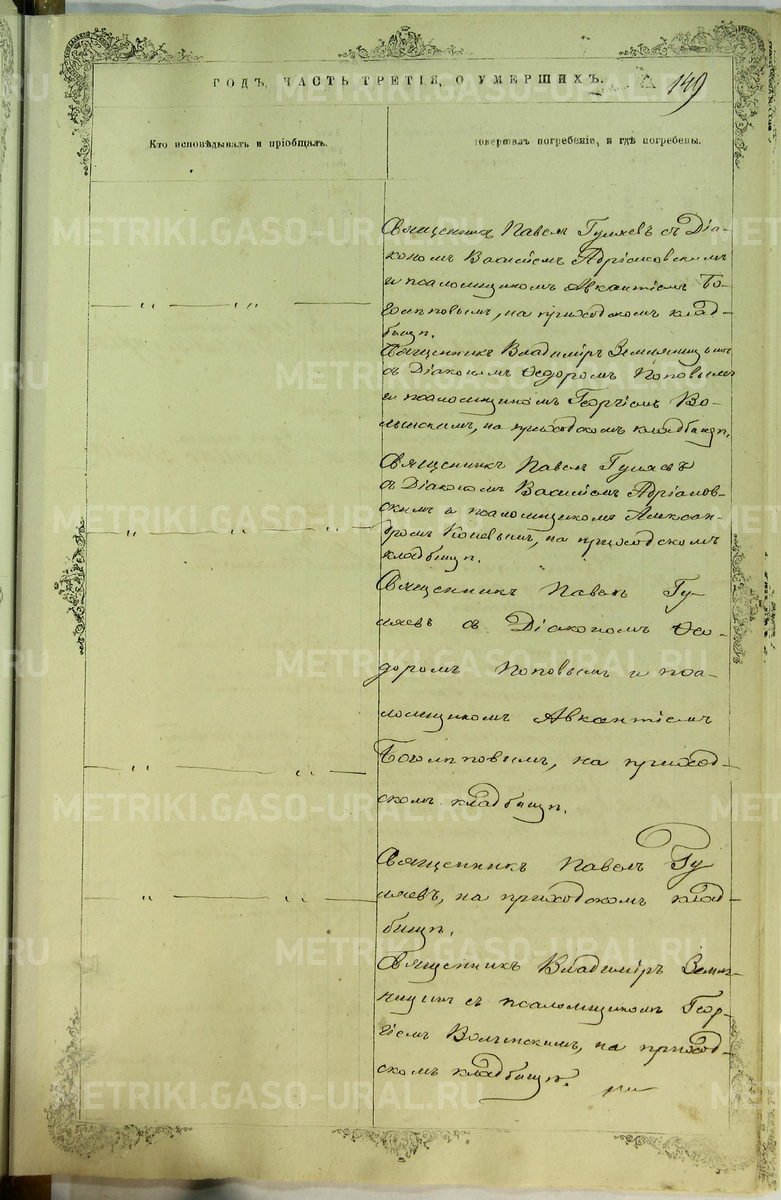 ГОДЪ, ЧАСТЬ ТРЕТІЯ, О УМЕРШИХЪ.
149
Кто исповѣдывалъ и пріобщалъ.
совершалъ погребеніе, и гдѣ погребены.
Священникъ Павелъ Гуляевъ съ Діа-
кономъ Василіемъ Адріановскимъ
и псаломщикомъ Авксентіемъ Бо-
голѣповымъ, на приходскомъ клад-
бищѣ.
Священникъ Владиміръ Земляницынъ
съ Діакономъ Ѳедоромъ Поповымъ
и псаломщикомъ Георгіемъ Во-
лынскимъ, на приходскомъ кладбищѣ.
Священникъ Павелъ Гуляевъ
съ Діакономъ Василіемъ Адріанов-
скимъ и псаломщикомъ Алексан-
дромъ на приходскомъ
кладбищѣ.
Священникъ Павелъ Гу-
ляевъ съ Діакономъ Ѳео-
доромъ Поповымъ и пса-
ломщикомъ Авксентіемъ
Боголѣповымъ, на приход-
скомъ кладбищѣ.
Священникъ Павелъ Гу
ляевъ, на приходскомъ клад-
бищѣ.
Священникъ Владиміръ Земля-
ницынъ съ псаломщикомъ Геор-
гіемъ Волынскимъ, на приход-
скомъ кладбищѣ.
METRIKI.GASO-URAL.RU